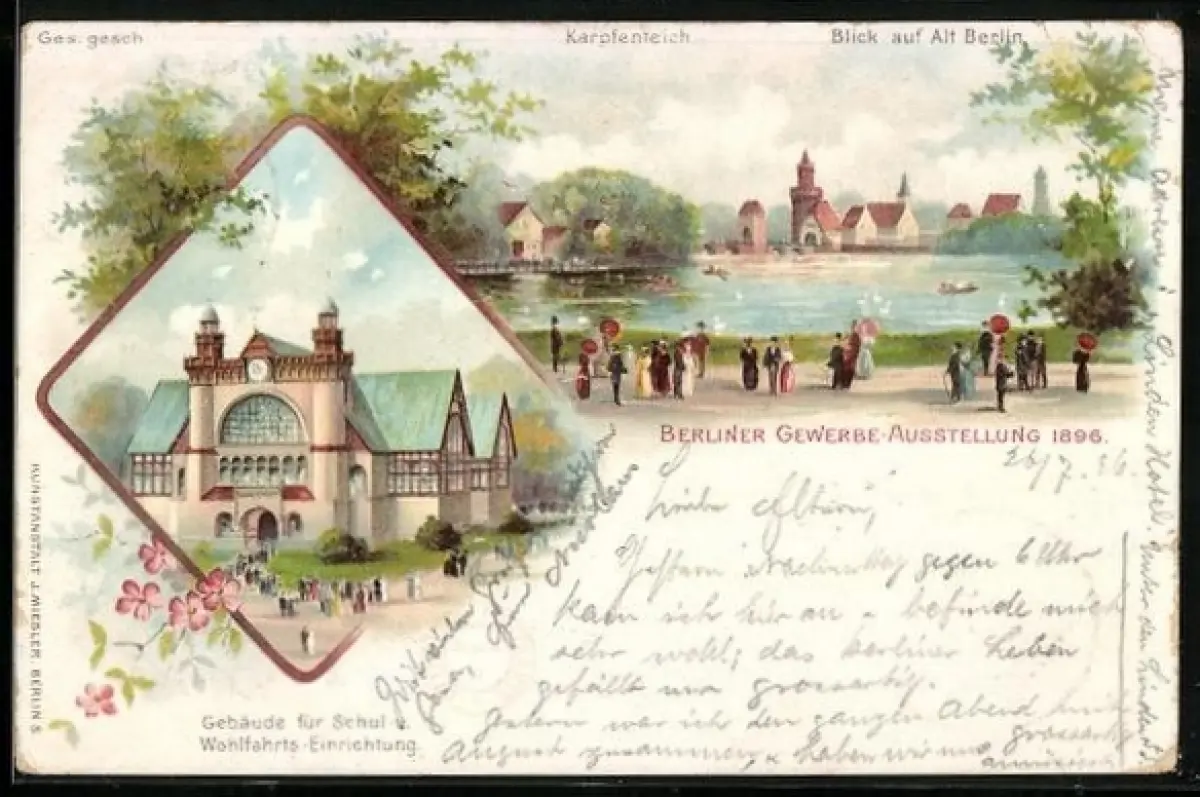 Ges. gesch
Karpfenteich
Blick auf Alt Berlin
BERLINER GEWERBE-AUSSTELLUNG 1896.
26/7. 96.
Liebe Eltern,
Gestern Nachmittag gegen 6 Uhr
kam ich hier an u befinde mich
sehr wohl; das berliner Leben
gefällt mir grossartig.
Gestern war ich den ganzen Abend mit
August zusammen, u haben wir uns grossartig
amüsirt
Gebäude für Schul u.
Wohlfahrts-Einrichtung
KUNSTANSTALT J. MIESLER, BERLIN S
Meine Adresse: Linden Hotel. Unter den Linden